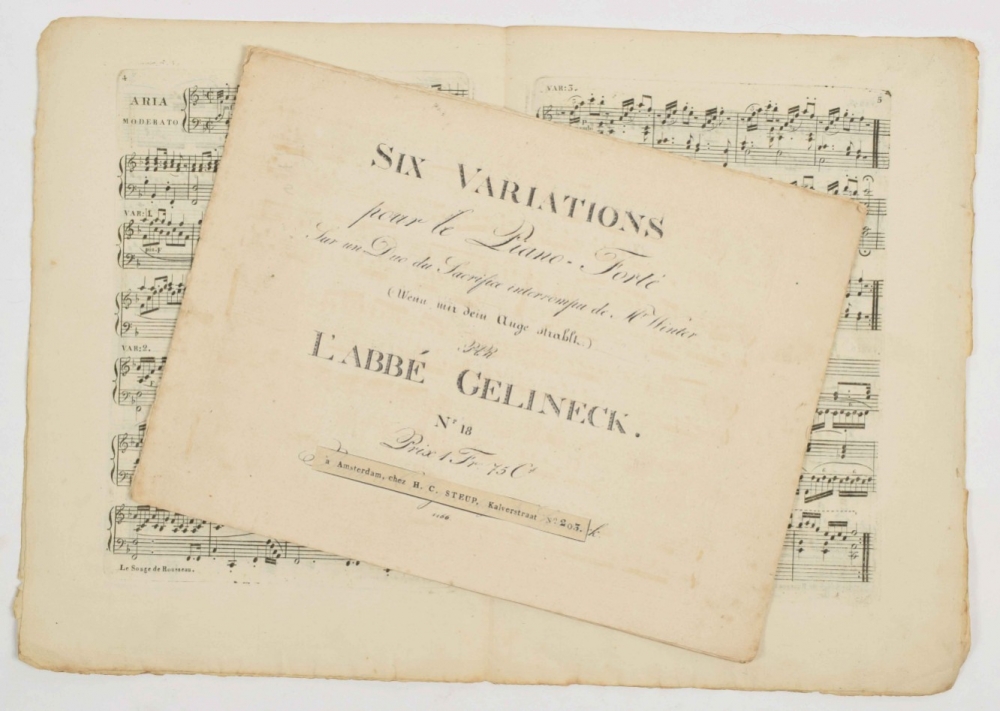 4
ARIA
MODERATO
VAR: 1.
VAR: 2.
Le Songe de Rousseau.
VAR: 3.
5
SIX VARIATIONS
pour le Piano-Forté
Sur un Duo du Sacrifice interrompu de Mr Winter
(Wenn mir dein Auge strahlt.)
PAR
L'ABBÉ GELINECK.
No 18
Prix 1 Fr. 75 Ct
à Amsterdam, chez H. C. STEUP, Kalverstraat No 203.